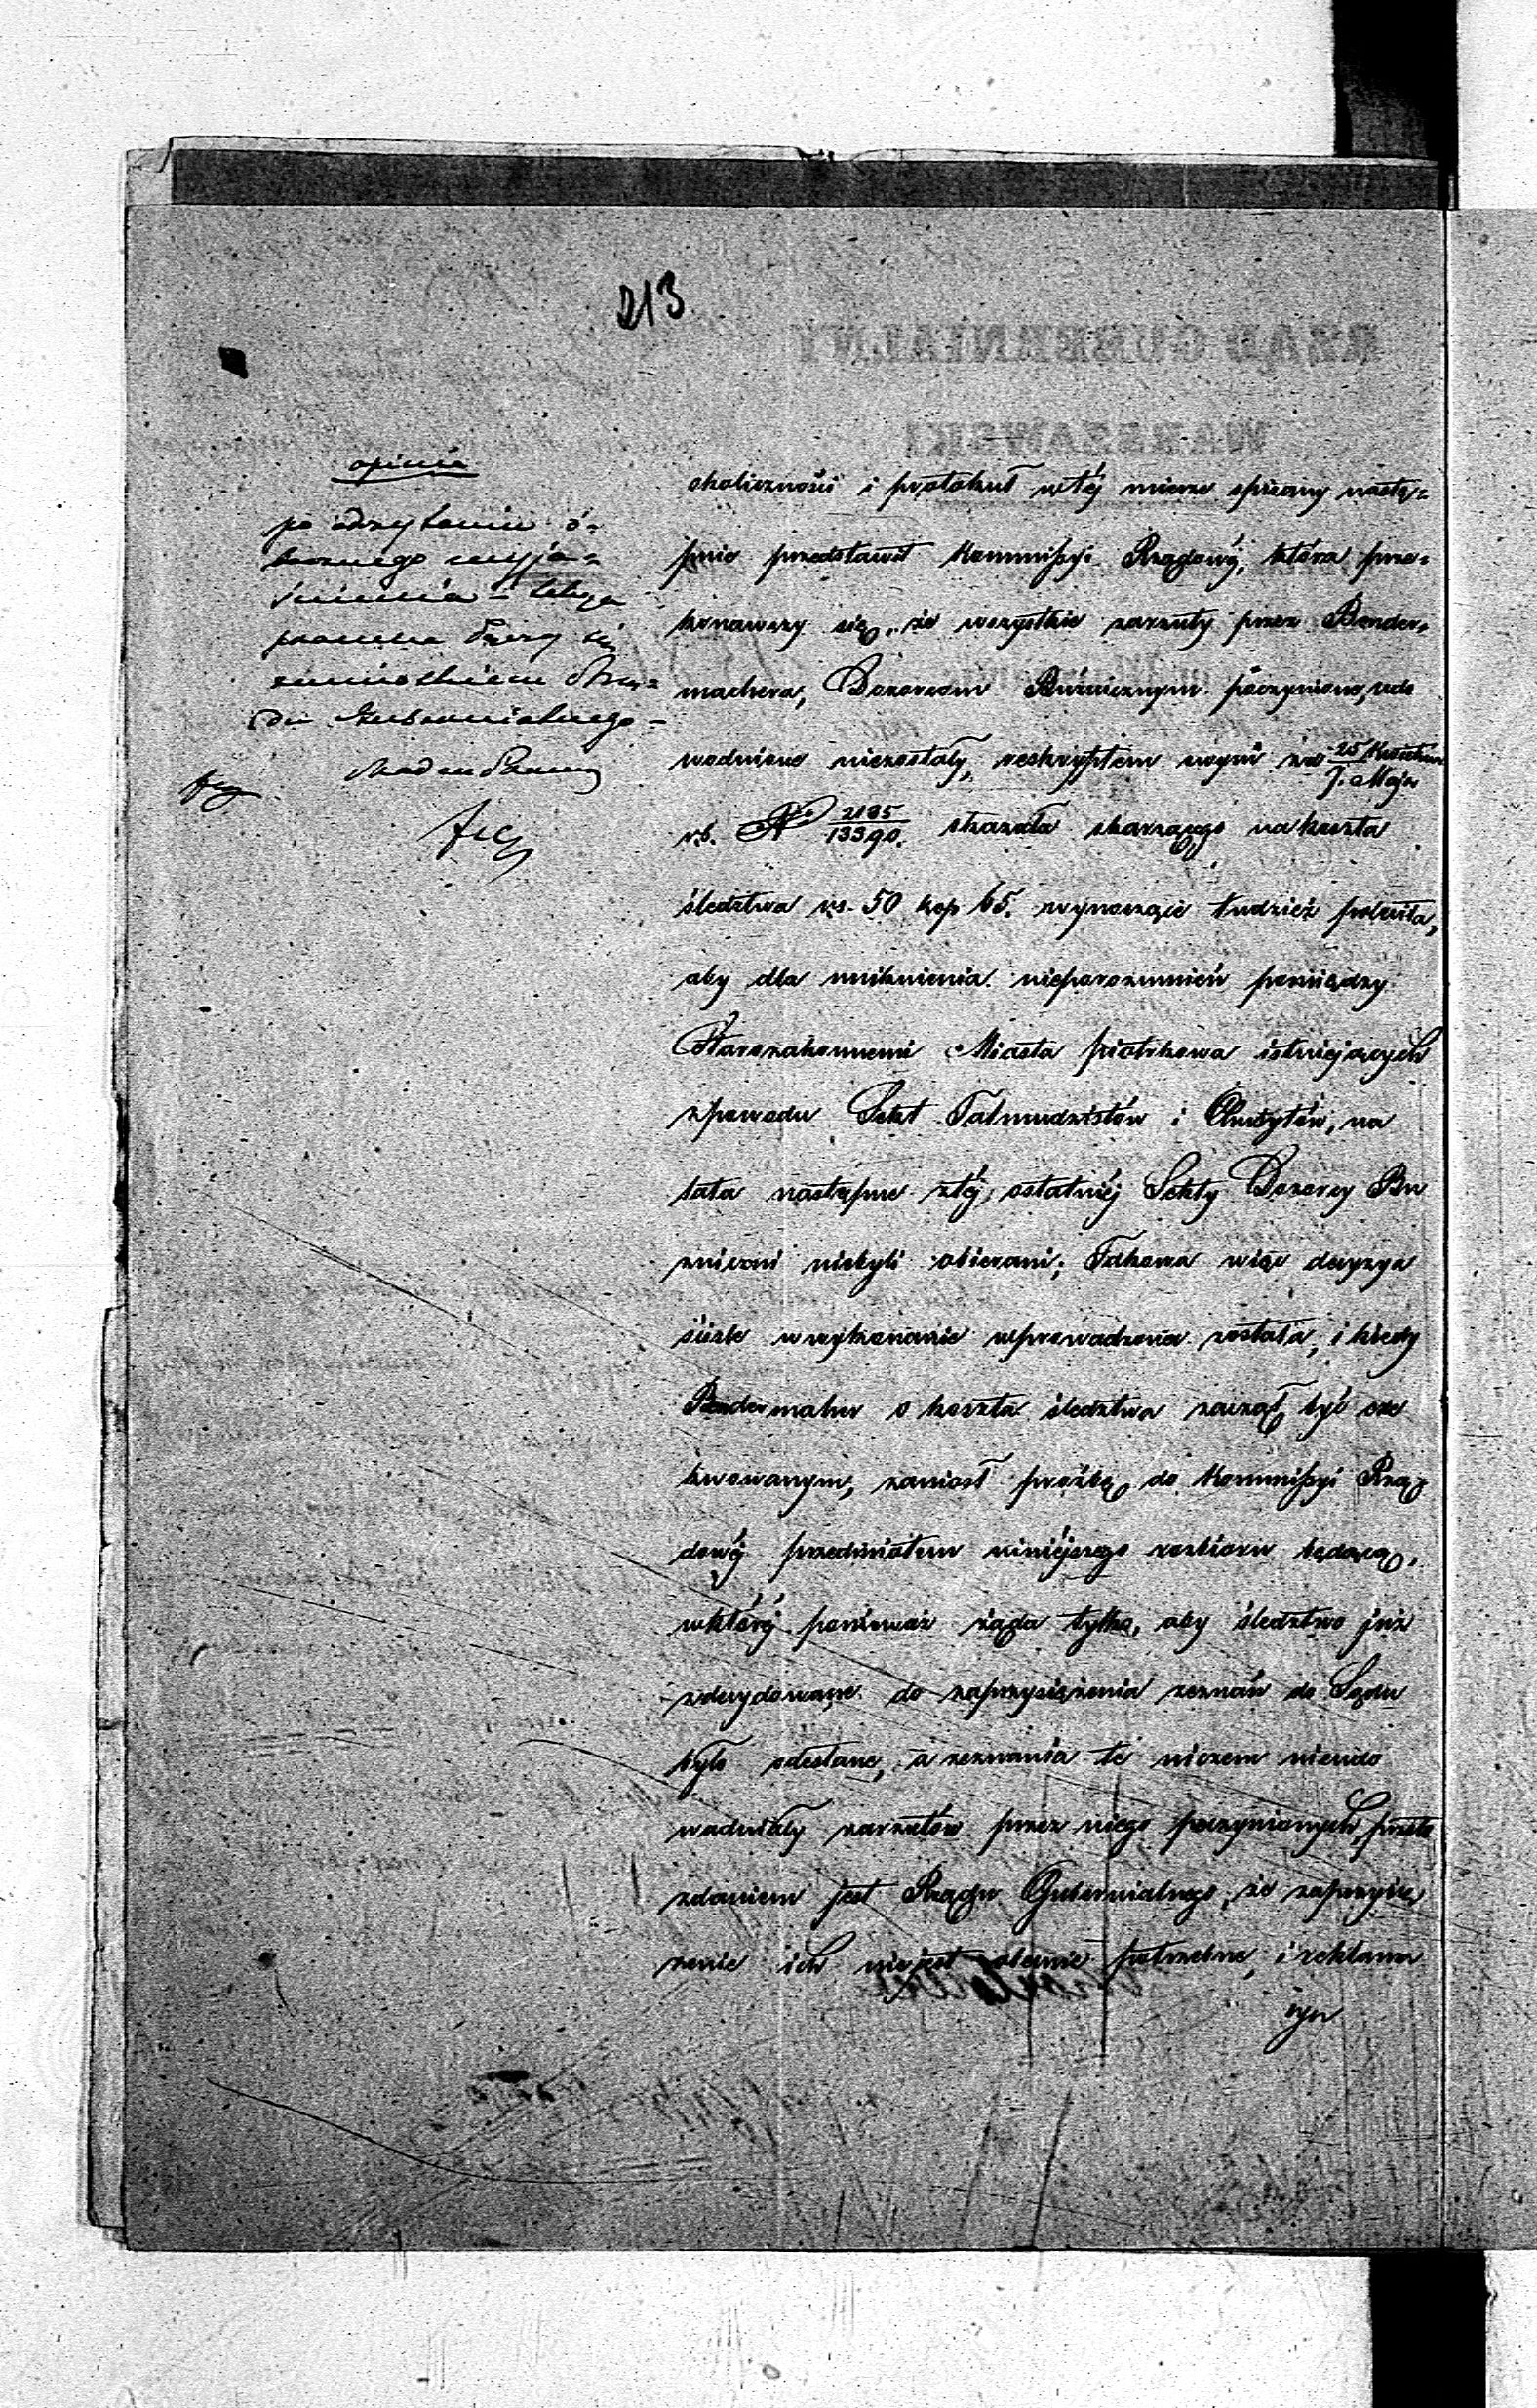 213
opinia
po odczytaniu o=
becnego wyja=
śnienia –
łączy się
z wnioskiem Rzą=
du Gubernialnego –
okoliczności i protokuł w téj mierze spisany nastę=
pnie przedstawił Kommissyi Rządowéj, która prze=
konawszy się, że wszystkie zarzuty przez Bender=
machera, Dozorcom Bóżnicznym poczynione, udo
wodnione niezostały, reskryptem swym z d. 25 Kwietnia / 7. Maja
r.b. No 2185/13390. skazała skarzącego na koszta
śledztwa rs. 50 kop 65. wynoszące tudzież poleciła,
aby dla uniknienia nieporozumień pomiędzy
Starozakonnemi Miasta Piotrkowa istniejących
z powodu Sekt Talmudzistów i Chussytów, na
lata następne z téj ostatniéj Sekty Dozorcy Bu
zniczni niebyli obierani; Takowa więc decyzya
ściśle w wykonanie wprowadzona została, i kiedy
Bendermaher o koszta śledztwa zaczął być exe
kwowanym, zaniosł proźbę do Kommissyi Rzą=
dowéj przedmiotem niniéjszego rozbioru będącą,
w któréj ponieważ żąda tylko, aby śledztwo już
zdecydowane do zaprzysiężenia zeznań do Sądu
było odesłane, a zeznania te niczem nieudo
wadniały zarzutów przez niego poczynionych, przeto
zdaniem jest Rządu Gubernialnego, że zaprzysię
żenie ich niejest obecnie potrzebne, i reklamu
jący